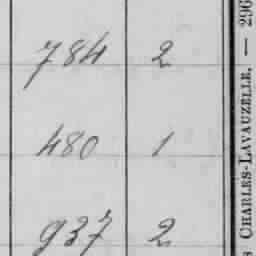 784 2
480 1
937 2
s CHARLES-LAVAUZELLE, — 296